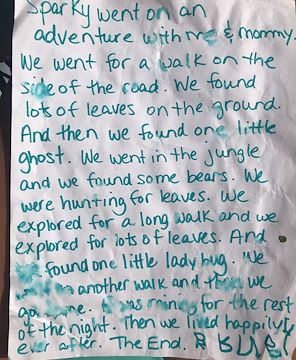 Sparky went on an
adventure with me & mommy.
We went for a walk on the
side of the road. We found
lots of leaves on the ground.
And then we found one little
ghost. We went in the jungle
and we found some bears. We
were hunting for leaves. We
explored for a long walk and we
explored for lots of leaves. And
found one little lady bug. We
another walk and then we
raining for the rest
of the night. Then we lived happily
ever after. The End.